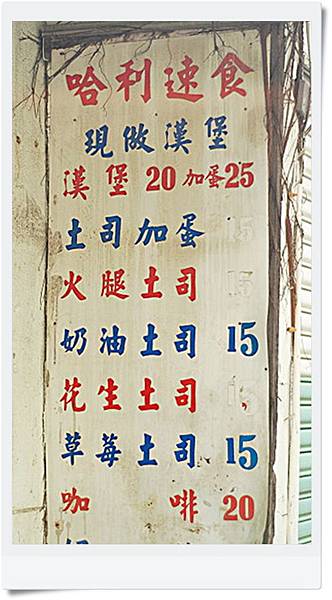 哈利速食
現做漢堡
漢堡 20 加蛋 25
土司加蛋 15
火腿土司 15
奶油土司 15
花生土司 15
草莓土司 15
咖啡 20